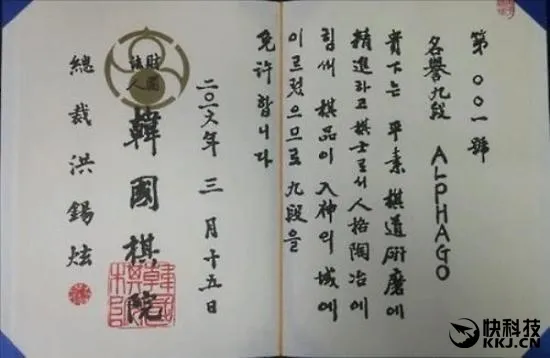 第〇〇一號
名譽九段 ALPHAGO
貴下는 平素 棋道硏磨에
精進하고 棋士로서 人格陶冶에
힘써 棋品이 入神의 域에
이르렀으므로 九段을
免許합니다
二〇一六年 三月 十五日
財團法人
韓國棋院
總裁 洪錫炫
快科技
KKJ.CN